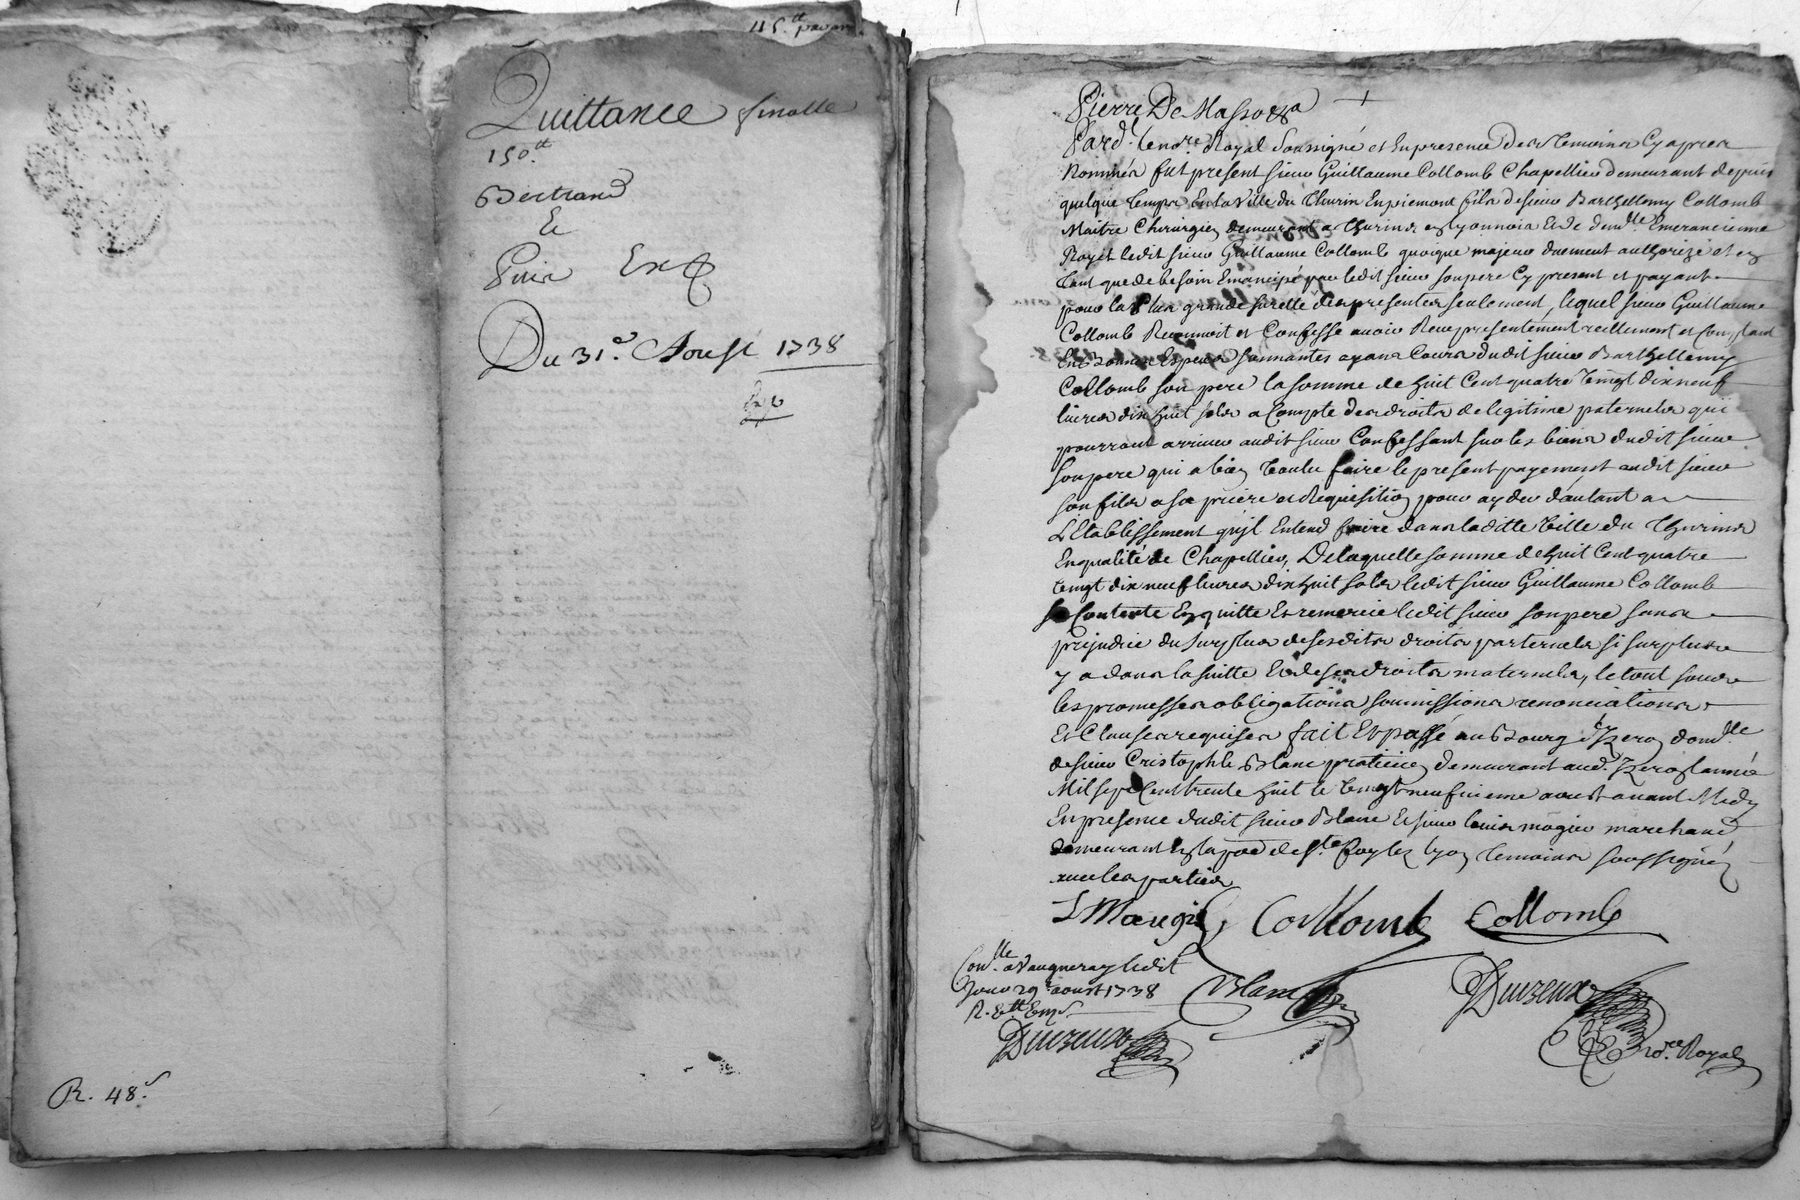 115.tt
Quittance finalle
150.tt
Bertrand
Et
Puis Exp
Du 31.e Aoust 1738
Exp
R. 48.s
Pierre De Masso
Pard.t Le no.re Royal Soussigné et En presence Des Temoins Cy apres
Nommés fut present sieur Guillaume Collomb Chapellier demeurant depuis
quelque temps En La Ville du Thurin En piemont fils de sieur Barthellemy Collomb
Maitre Chirurgien demeurant a Thurins en Lyonnois Et de dem.lle Emerancienne
Royet ledit sieur Guillaume Collomb quoique majeur duement authorizé et en
tant que de besoin Emancipé par ledit sieur son pere Cy present et payant
pour la plus grande surette des presentes seulement, lequel sieur Guillaume
Collomb Reconnoit et Confesse avoir Receu presentement reellement et Comptant
En bonnes Especes sonnantes ayans Cours dudit sieur Barthellemy
Collomb son pere la somme de huit Cent quatre vingt dix neuf
livres dix huit sols a Compte des droits de legitime paternels qui
pourront arriver audit sieur Confessant sur les biens dudit sieur
son pere qui a bien Voulu faire le present payement audit sieur
son fils a sa priere et Requisition pour ayder d'autant a
L'Etablissement qu'jl Entend faire dans laditte Ville du Thurin
En qualité de Chapellier, De laquelle somme de huit Cent quatre
vingt dix neuf livres dix huit sols ledit sieur Guillaume Collomb
se Contente En quitte Et remercie ledit sieur son pere sans
prejudice du surplus de sesdits droits paternels si surplus
y a dans la suitte Et de ses droits maternels, le tout sous
les promesses obligations soumissions renonciations
Et Clauses requises fait Et passé au Bourg d'Izeron dom.lle
de sieur Cristophle Blanc praticien demeurant aud. Izeron l'année
Mil sept Cent trente huit le vingt neufvieme aoust avant Midy
En presence dudit sieur Blanc Et sieur Louis Mogier marchand
demeurant En la psse de S.te Foy les Lyon temoins soussignés
avec les parties
Collomb Collomb
Con.lle a Vaugneray ledit
Jour 29.e aoust 1738
Blanc
Duizeux
Duizeux
no.re Royal